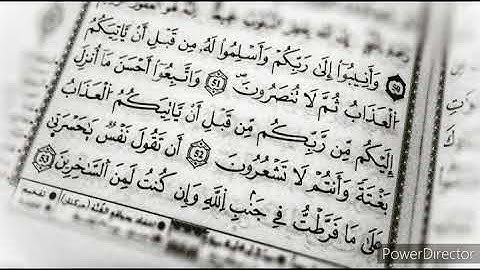 50 وَأَنِيبُوٓاْ إِلَىٰ رَبِّكُمْ وَأَسْلِمُواْ لَهُۥ مِن قَبْلِ أَنْ يَّاتِيَكُمُ
اُ۬لْعَذَابُ ثُمَّ لَا تُنصَرُونَ 51 وَاتَّبِعُوٓاْ أَحْسَنَ مَآ أُنزِلَ
إِلَيْكُم مِّن رَّبِّكُم مِّن قَبْلِ أَنْ يَّاتِيَكُمُ اُ۬لْعَذَابُ
بَغْتَةً وَأَنتُمْ لَا تَشْعُرُونَ 52 أَن تَقُولَ نَفْسٌ يَٰحَسْرَتَىٰ
عَلَىٰ مَا فَرَّطتُ فِي جَنۢبِ اِ۬للَّهِ وَإِن كُنتُ لَمِنَ اَ۬لسَّٰخِرِينَ 53
PowerDirector